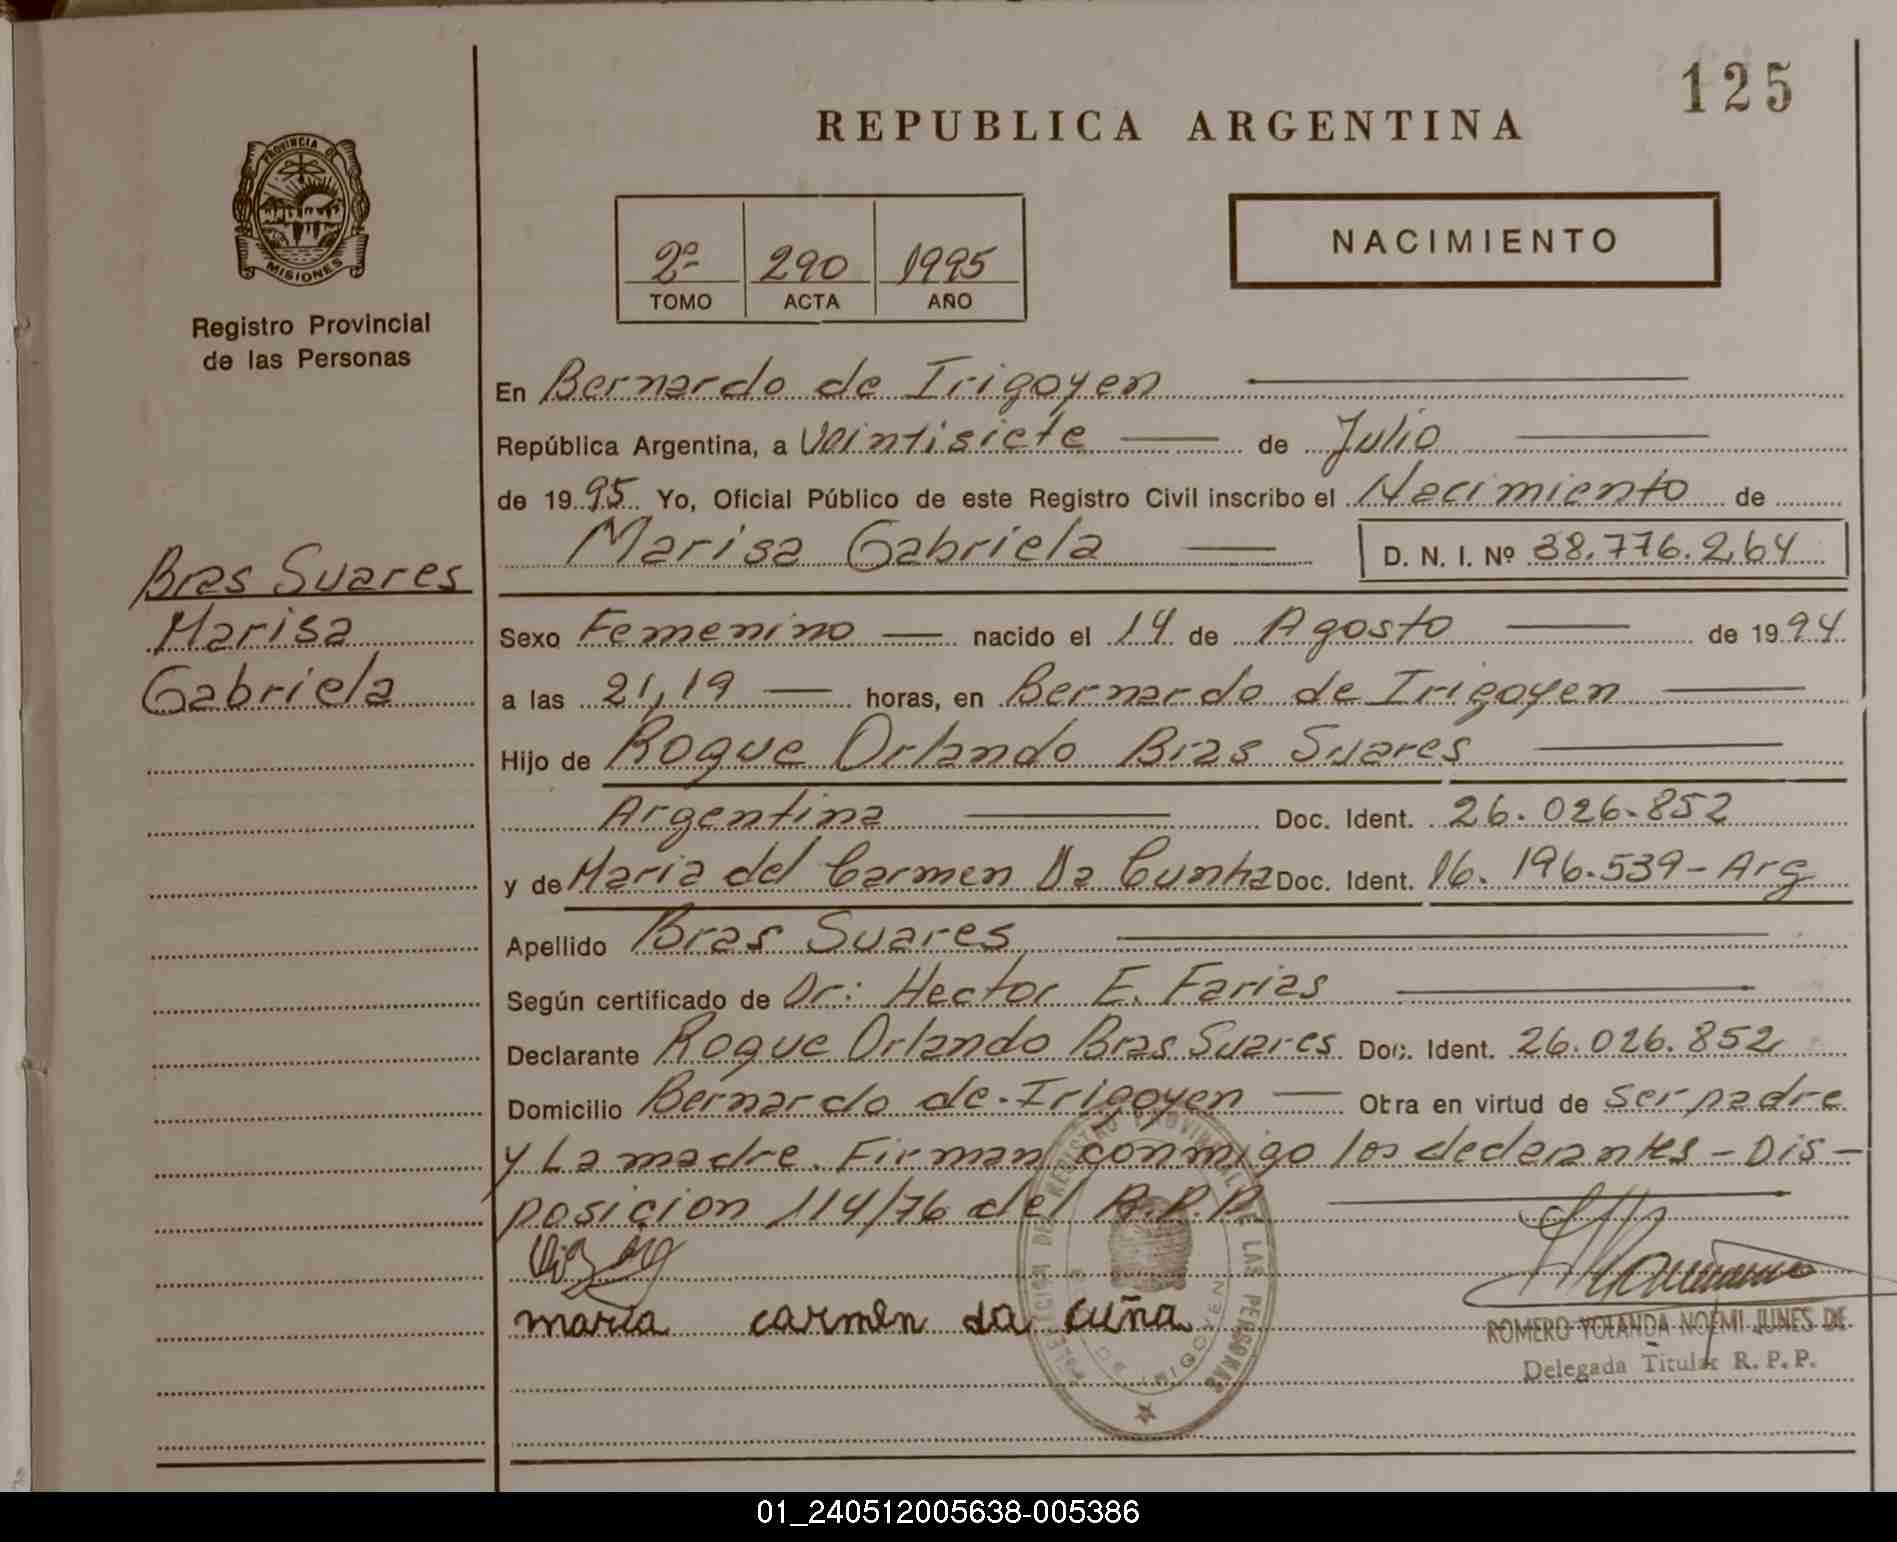 125
REPUBLICA ARGENTINA
PROVINCIA DE
MISIONES
Registro Provincial
de las Personas
2º 290 1995
TOMO ACTA AÑO
NACIMIENTO
En Bernardo de Irigoyen
República Argentina, a Veintisiete de Julio
de 1995 Yo, Oficial Público de este Registro Civil inscribo el Nacimiento de
Marisa Gabriela D. N. I. Nº 38.776.264
Bras Suares
Marisa
Gabriela
Sexo Femenino nacido el 14 de Agosto de 1994
a las 21,19 horas, en Bernardo de Irigoyen
Hijo de Roque Orlando Bras Suares
Argentina Doc. Ident. 26.026.852
y de Maria del Carmen Da Cunha Doc. Ident. 16.196.539-Arg
Apellido Bras Suares
Según certificado de Dr: Hector E. Farias
Declarante Roque Orlando Bras Suares Doc. Ident. 26.026.852
Domicilio Bernardo de Irigoyen Obra en virtud de ser padre
y La madre. Firman conmigo los declarantes - Dis-
posicion 114/76 del R.P.P.
maria carmen da cuña
REGISTRO PROVINCIAL DE LAS PERSONAS
IRIGOYEN
ROMERO YOLANDA NOEMI JUNES DE
Delegada Titular R. P. P.
01_240512005638-005386